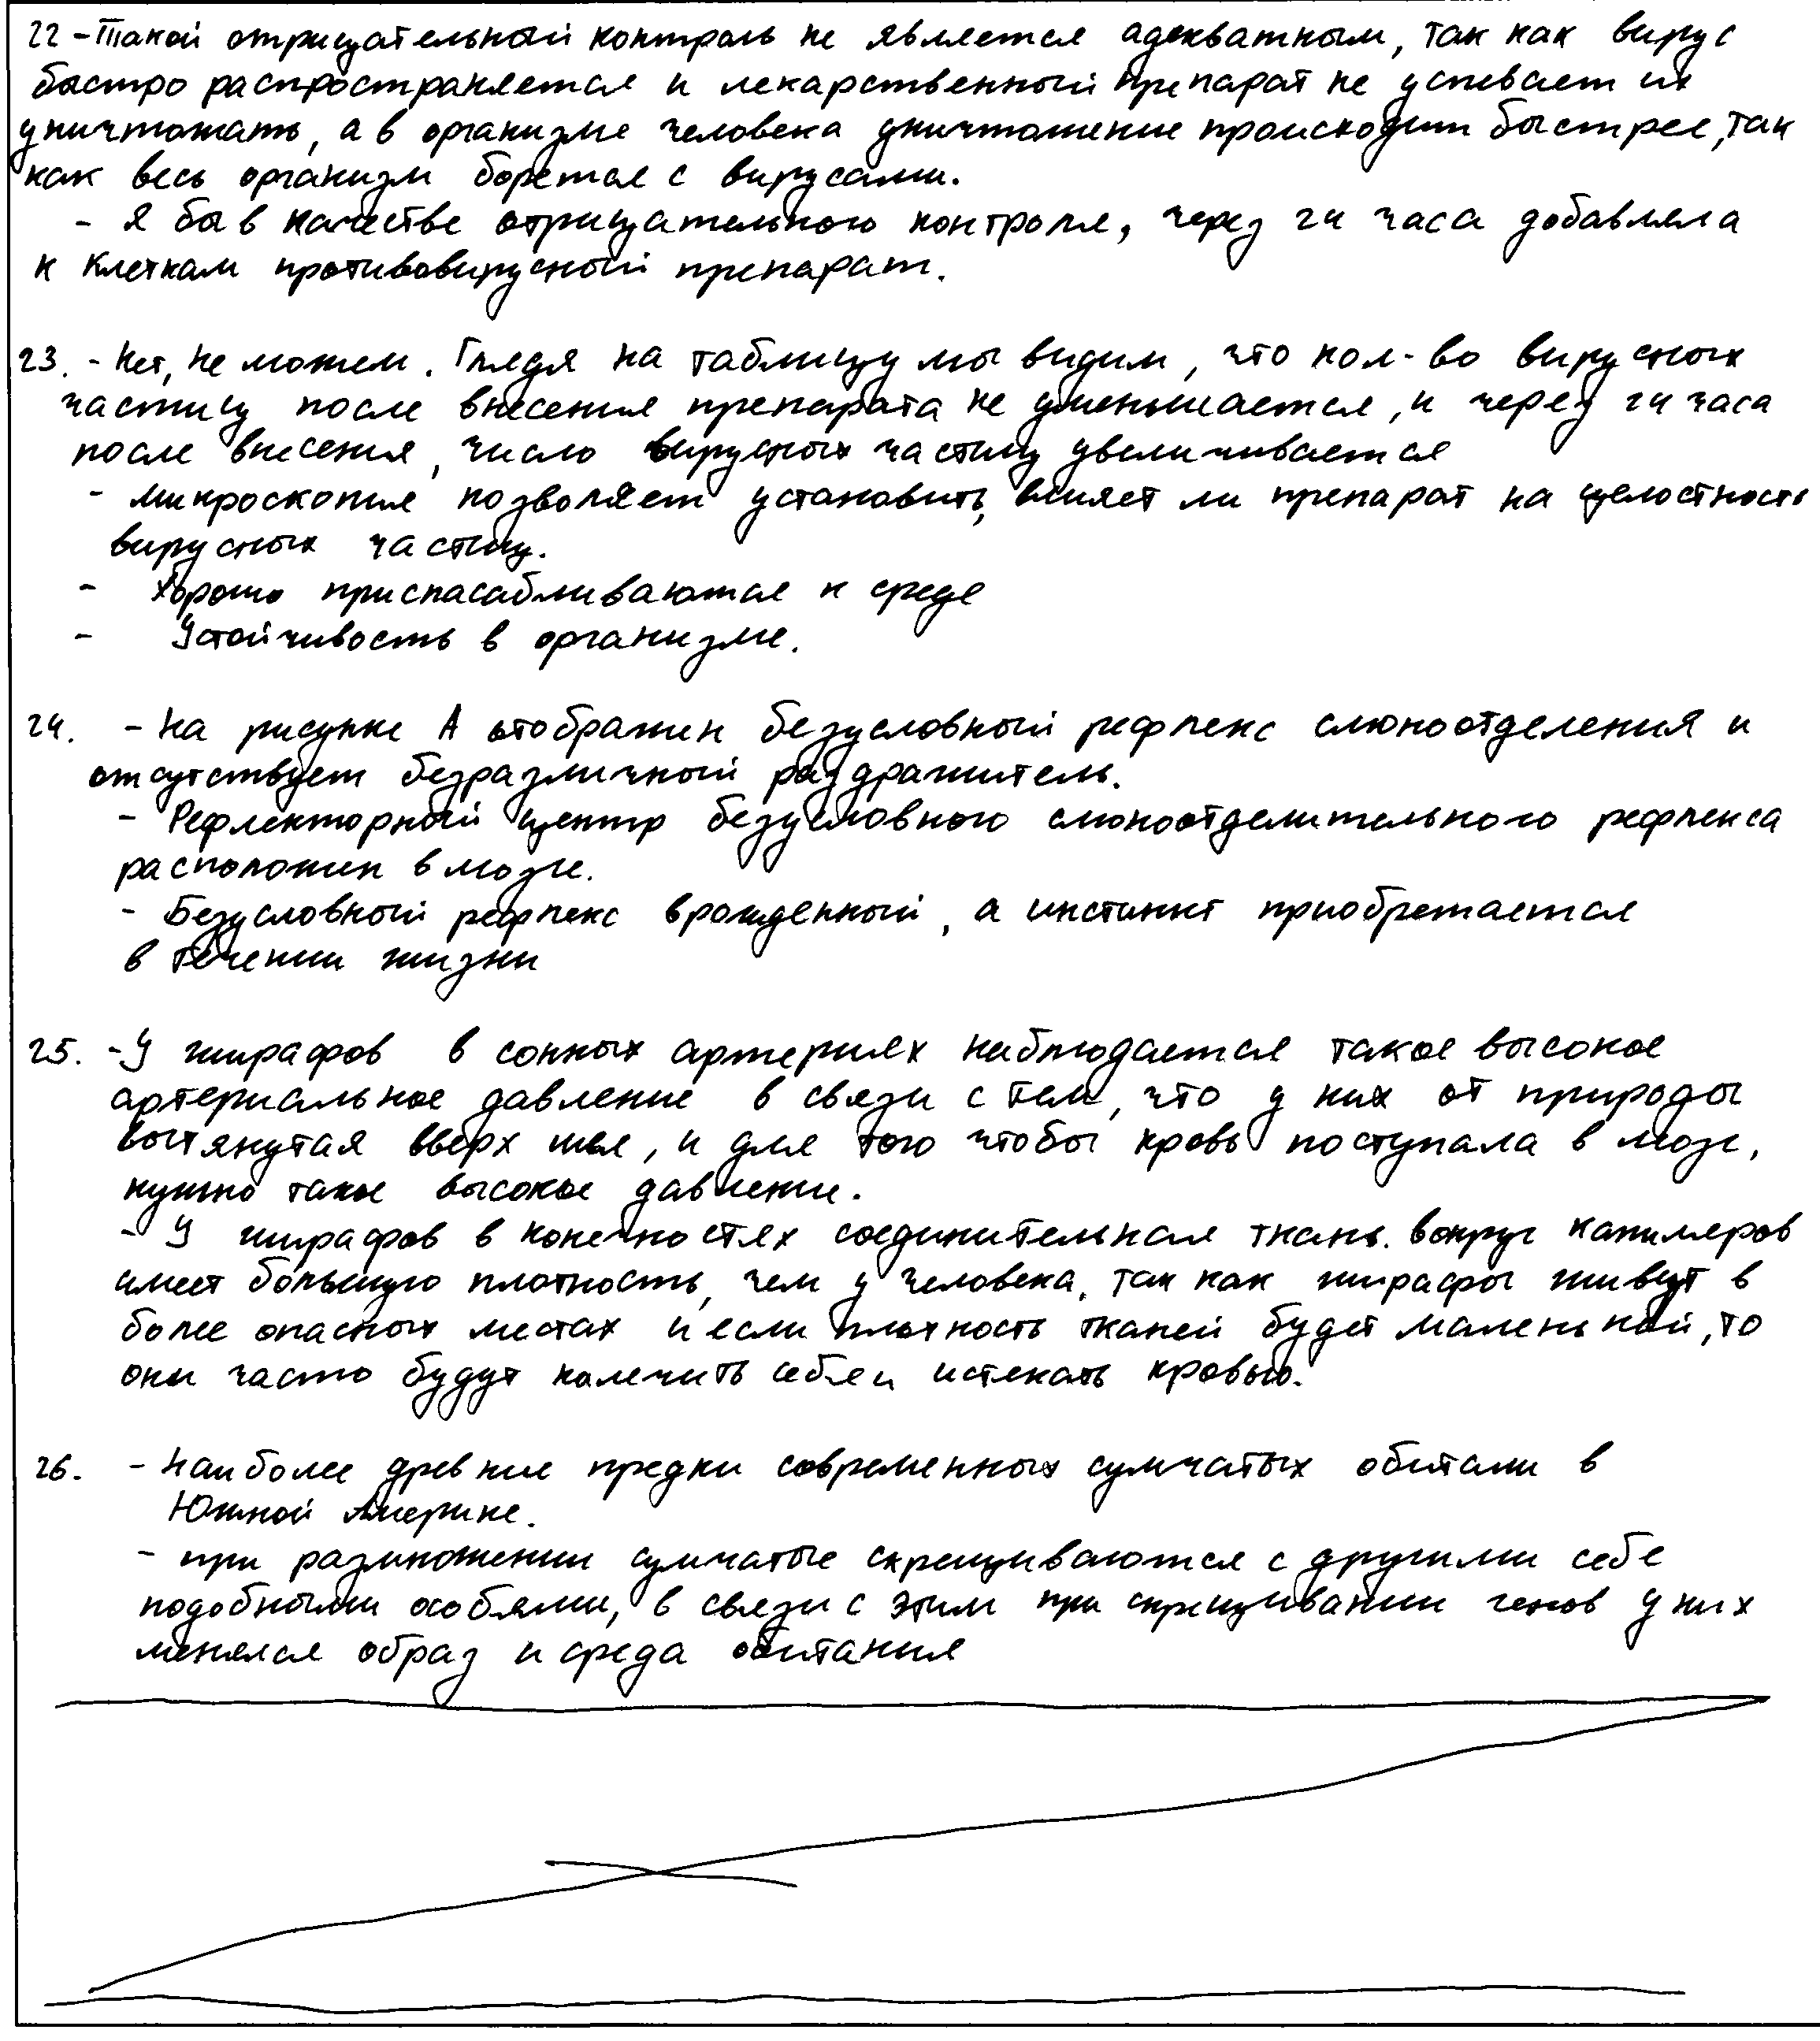 22 - Такой отрицательный контроль не является адекватным, так как вирус
быстро распространяется и лекарственный препарат не успевает их
уничтожать, а в организме человека уничтожение происходит быстрее, так
как весь организм борется с вирусами.
- Я бы в качестве отрицательного контроля, через 24 часа добавляла
к клеткам противовирусный препарат.
23. - Нет, не можем. Глядя на таблицу мы видим, что кол-во вирусных
частиц после внесения препарата не уменьшается, и через 24 часа
после внесения, число вирусных частиц увеличивается
- Микроскопия позволяет установить, влияет ли препарат на целостность
вирусных частиц.
- Хорошо приспасабливаются к среде
- Устойчивость в организме.
24. - На рисунке А отображен безусловный рефлекс слюноотделения и
отсутствует безразличный раздражитель.
- Рефлекторный центр безусловного слюноотделительного рефлекса
расположен в мозге.
- Безусловный рефлекс врожденный, а инстинкт приобретается
в течении жизни
25. - У жирафов в сонных артериях наблюдается такое высокое
артериальное давление в связи с тем, что у них от природы
вытянутая вверх шея, и для того чтобы кровь поступала в мозг,
нужно такое высокое давление.
- У жирафов в конечностях соединительная ткань вокруг капиляров
имеет большую плотность, чем у человека, так как жирафы живут в
более опасных местах и если плотность тканей будет маленькой, то
они часто будут калечить себя и истекать кровью.
26. - Наиболее древние предки современных сумчатых обитали в
Южной Америке.
- при размножении сумчатые скрещиваются с другими себе
подобными особями, в связи с этим при скрещивании генов у них
менялся образ и среда обитания